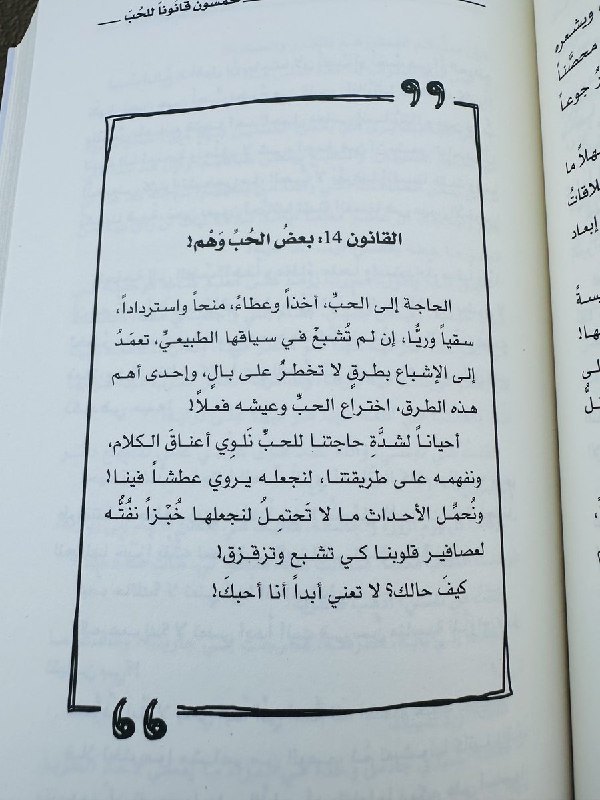 خمسون قانوناً للحُبّ
القانون 14: بعضُ الحُبِّ وَهْم!
الحاجة إلى الحبِّ، أخذاً وعطاءً، منحاً واسترداداً،
سقياً وريًّا، إن لم تُشبعْ في سياقها الطبيعيِّ، تعمَدُ
إلى الإشباع بطرقٍ لا تخطرُ على بالٍ، وإحدى أهم
هذه الطرق، اختراع الحبِّ وعيشه فعلاً!
أحياناً لشدَّةِ حاجتنا للحبِّ نَلوي أعناقَ الكلام،
ونفهمه على طريقتنا، لنجعله يروي عطشاً فينا!
ونُحمِّل الأحداث ما لا تَحتمِلُ لنجعلها خُبْزاً نفُتُّه
لعصافير قلوبنا كي تشبع وتزقزق!
كيفَ حالك؟ لا تعني أبداً أنا أحبكَ!
ويشعره
محصَّناً
جوعاً
ما
إبعاد